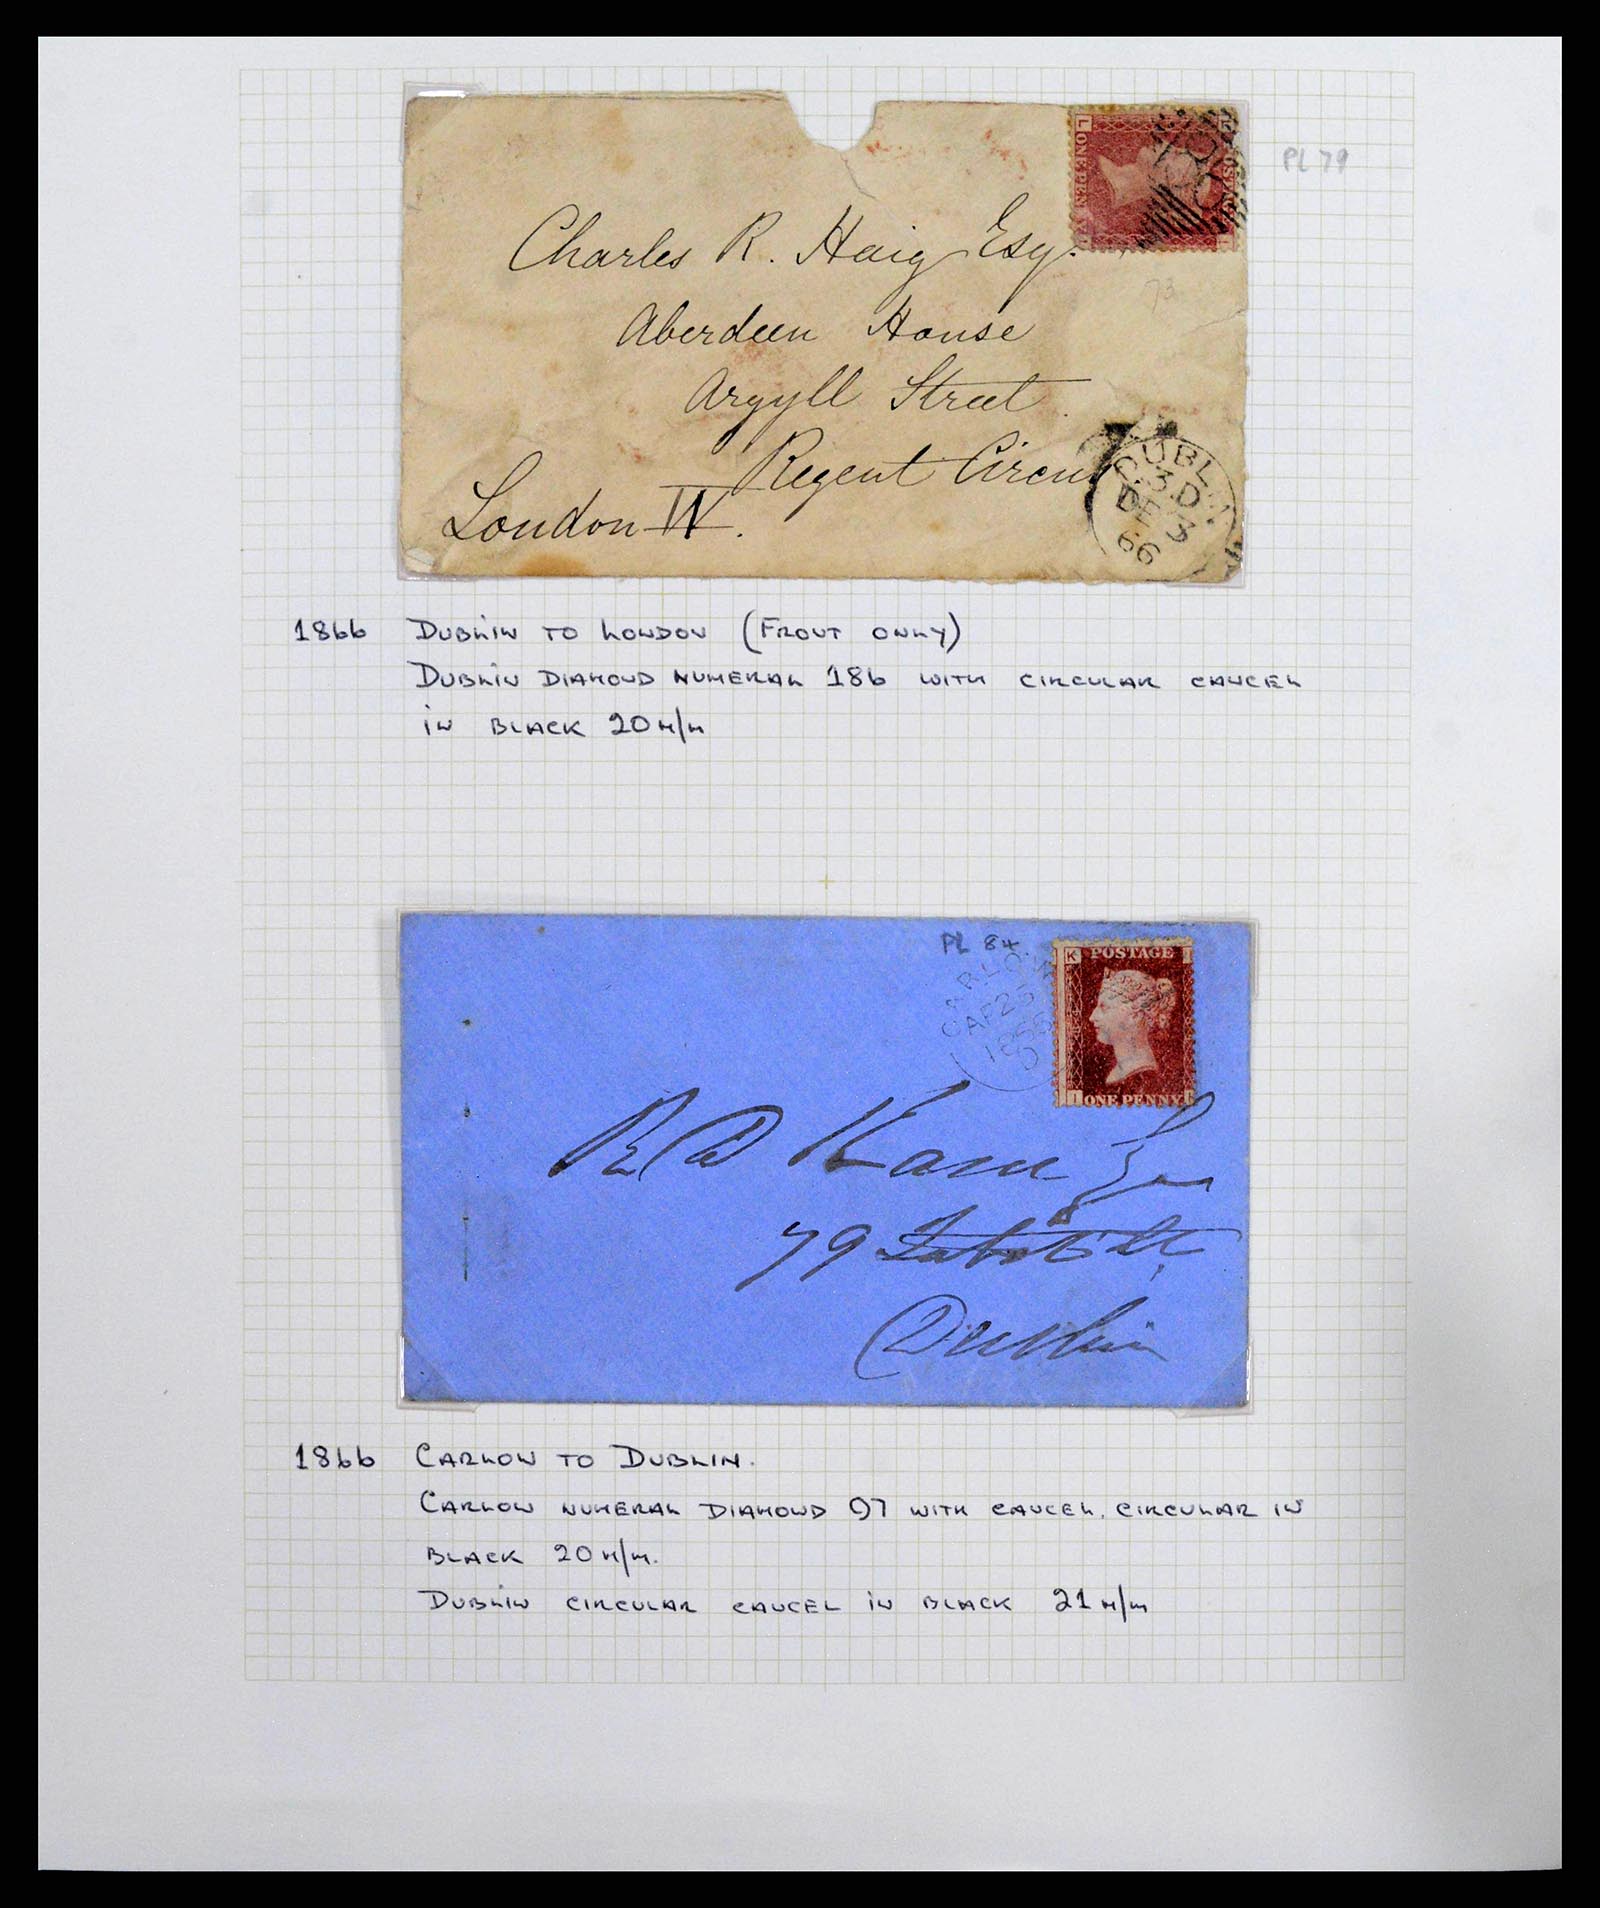 PL 79
Charles R. Haig Esq.
73
Aberdeen House
Argyll Street
Regent Circus
London W.
DUBLIN
3 D
DE 3
66
1866 DUBLIN TO LONDON (FRONT ONLY)
DUBLIN DIAMOND NUMERAL 186 WITH CIRCULAR CANCEL
IN BLACK 20 M/M
PL 84
CARLOW
AP 25
1866
K POSTAGE I
I ONE PENNY
79
Dublin
1866 CARLOW TO DUBLIN.
CARLOW NUMERAL DIAMOND 97 WITH CANCEL. CIRCULAR IN
BLACK 20 M/M.
DUBLIN CIRCULAR CANCEL IN BLACK 21 M/M